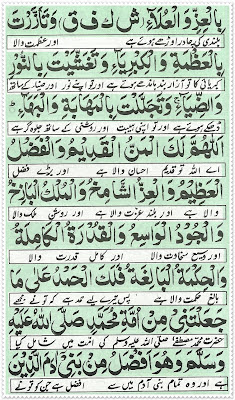 بِالْعِزِّ وَالْعُلَاءِ وَتَأَزَّرْتَ
بلندی کی چادر اوڑھے ہوئے ہے اور عظمت والا
بِالْعَظَمَةِ وَالْكِبْرِيَاءِ وَتَغَشَّيْتَ بِالنُّوْرِ
کبریائی کو آزار بند باندھے ہوئے ہے اور تو اپنے نور اور ضیاء کے ساتھ
وَالضِّيَاءِ وَتَجَلَّلْتَ بِالْمَهَابَةِ وَالْبَهَاءِ
ڈھکے ہوئے ہے اور تو اپنی ہیبت اور روشنی کے ساتھ جلوہ گر ہے
اَللّٰهُمَّ لَكَ الْمَنُّ الْقَدِيْمُ وَالْفَضْلُ
اے اللہ تو قدیم احسان والا ہے اور بڑے فضل
الْعَظِيْمُ وَالْعِزُّ الشَّامِخُ وَالْمُلْكُ الْبَاذِخُ
والا ہے اور بلند عزت والا ہے اور روشن ملک والا
وَالْجُوْدُ الْوَاسِعُ وَالْقُدْرَةُ الْكَامِلَةُ
اور وسیع سخاوت والا اور کامل قدرت والا
وَالْحِكْمَةُ الْبَالِغَةُ فَلَكَ الْحَمْدُ عَلٰى مَا
بالغ حکمت والا ہے پس تیرے لیے حمد ہے کہ تو نے مجھے
جَعَلْتَنِيْ مِنْ اُمَّةِ مُحَمَّدٍ صَلَّى اللّٰهُ عَلَيْهِ
محمد مصطفیٰ صلی اللہ علیہ وسلم کی امت میں شامل کیا
وَسَلَّمَ وَهُوَ اَفْضَلُ مِنْ بَنِيْ اٰدَمَ الَّذِيْنَ
ہے اور وہ تمام بنی آدم میں سے افضل ہے جن کو تو نے